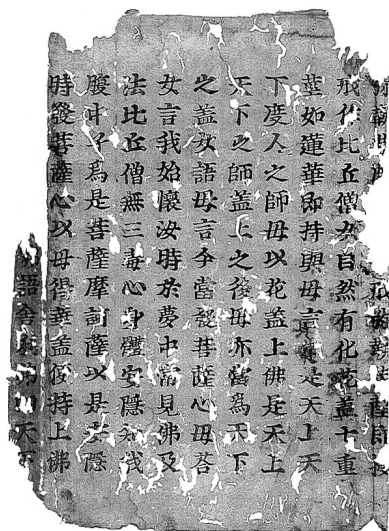 作比丘僧女自然有化花盖十重
莖如蓮華即持與毋言是天上天
下度人之師毋以花盖上佛是天上
天下之師盖上之後毋亦當為天下
之盖女語毋言今當發菩薩心毋荅
女言我始懷汝時於夢中常見佛及
法比丘僧無三毒心身體安隱知我
腹中子為是菩薩摩訶薩以是安隱
時發菩薩心以毋得華盖便持上佛
語舍弗天下